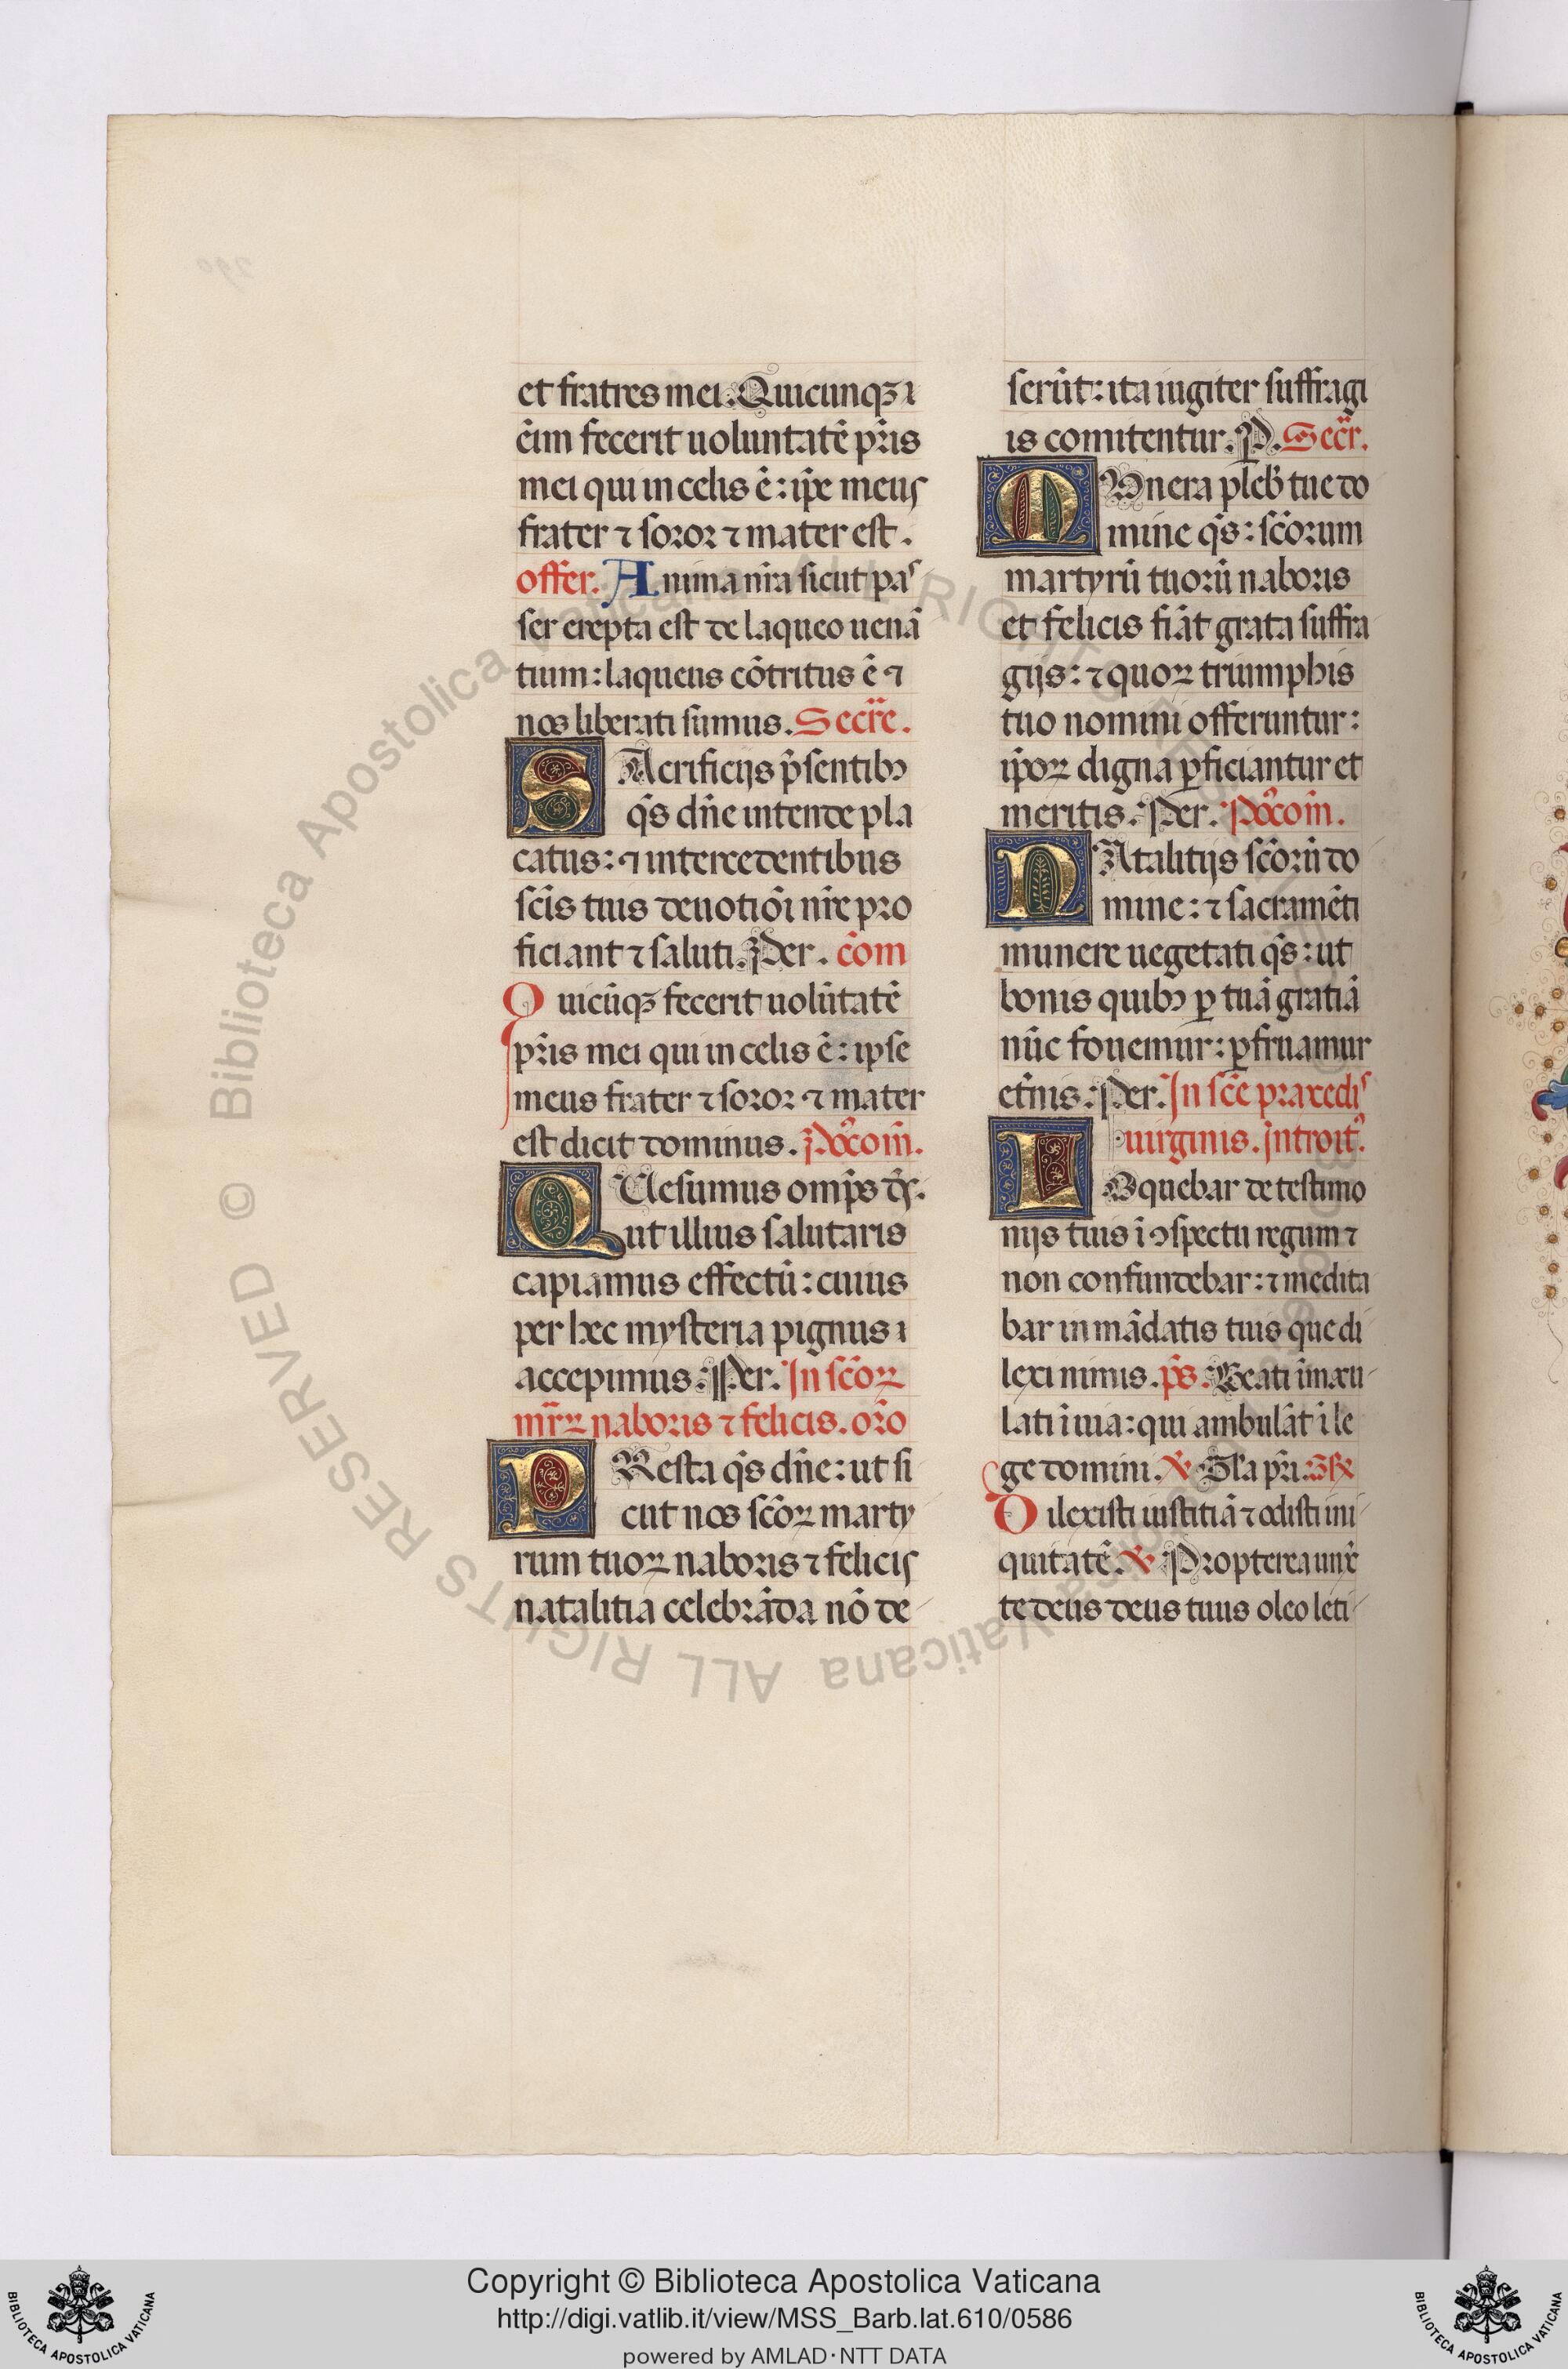 et fratres mei. Quicunqꝫ ı
ēim fecerit uoluntatē pr̄is
mei qui in celis ē: ip̄e meus
frater ⁊ soror ⁊ mater est.
offer. Anima nr̄a sicut pas
ser erepta est de laqueo uenā
tium: laqueus cōtritus ē ⁊
nos liberati sumus. Secr̄e.
SAcrificijs p̄sentibꝫ
qs̄ dn̄e intende pla
catus: ⁊ intercedentibus
sc̄is tuis deuotiōi nr̄e pro
ficiant ⁊ saluti. Per. cōm
Quicūqꝫ fecerit uolūtatē
pr̄is mei qui in celis ē: ipse
meus frater ⁊ soror ⁊ mater
est dicit dominus. Pꝰcom̄.
QUesumus omp̄s ds̄.
ut illius salutaris
capiamus effectū: cuius
per hec mysteria pignus ı
accepimus: Per. In sc̄oꝝ
mr̄ꝝ naboris ⁊ felicis. or̄o
PResta qs̄ dn̄e: ut si
cut nos sc̄oꝝ marty
rum tuoꝝ naboris ⁊ felicis
natalitia celebrāda nō de
serūt: ita iugiter suffragi
is comitentur. P. Secr̄.
MUnera pleb̄ tue do
mine qs̄: sc̄orum
martyrū tuorū naboris
et felicis fiāt grata suffra
gijs: ⁊ quoꝝ triumphis
tuo nomini offeruntur:
ip̄oꝝ digna ꝑficiantur et
meritis: Per. Pꝰcom̄.
NAtalitijs sc̄orū do
mine: ⁊ sacramēti
munere uegetati qs̄: ut
bonis quibꝫ ꝑ tuā gratiā
nūc fouemur: ꝑfruamur
et̄nis: Per. In sc̄e praxedis
uirginis. Introitꝰ.
LOquebar de testimo
nijs tuis ī ↄspectu regum ⁊
non confundebar: ⁊ medita
bar in mādatis tuis que di
lexi nimis. ps̄. Beati īmacu
lati ī uia: qui ambulāt ī le
ge domini. ℣ Gl̄a pr̄i. Gr̄
Dilexisti iustitiā ⁊ odisti ini
quitatē. ℣ Propterea unx̄
te deus deus tuus oleo leti
© Biblioteca Apostolica Vaticana ALL RIGHTS RESERVED
Copyright © Biblioteca Apostolica Vaticana
http://digi.vatlib.it/view/MSS_Barb.lat.610/0586
powered by AMLAD·NTT DATA
BIBLIOTECA APOSTOLICA VATICANA
BIBLIOTECA APOSTOLICA VATICANA